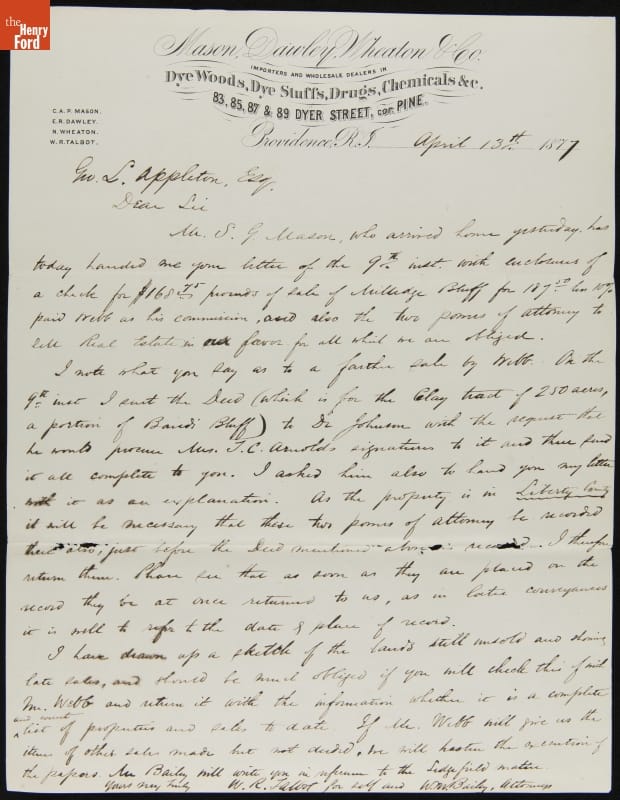 the
Henry
Ford
Mason, Dawley, Wheaton & Co.
IMPORTERS AND WHOLESALE DEALERS IN
Dye Woods, Dye Stuffs, Drugs, Chemicals &c.
83, 85, 87 & 89 DYER STREET, cor. PINE.
C. A. P. MASON.
E. R. DAWLEY.
N. WHEATON.
W. R. TALBOT.
Providence, R.I. April 13th 1877
Geo. L. Appleton, Esq.
Dear Sir
Mr. S. G. Mason, who arrived home yesterday, has
today handed me your letter of the 9th inst. with enclosures of
a check for $168 75 proceeds of sale of Milledge Bluff for 187 50 less 10%
paid Webb as his commission, and also the two powers of attorney to
sell Real Estate in our favor for all which we are obliged.
I note what you say as to a farther sale by Webb. On the
9th inst I sent the Deed (which is for the Clay tract of 250 acres,
a portion of Bluff) to Dr Johnson with the request that
he would procure Mrs. T. C. Arnold's signatures to it and then send
it all complete to you. I asked him also to hand you my letter
with it as an explanation. As the property is in Liberty County
it will be necessary that these two powers of attorney be recorded
there also, just before the Deed mentioned above is record. I therefore
return them. Please see that as soon as they are placed on the
record they be at once returned to us, as in later conveyances
it is well to refer to the date & place of record.
I have drawn up a sketch of the lands still unsold and showing
late sales, and should be much obliged if you will check this f mit
Mr. Webb and return it with the information whether it is a complete
and correct
list of properties and sales to date. If Mr. Webb will give us the
items of other sales made but not deeded, we will hasten the execution of
the papers. Mr Bailey will write you in reference to the Sedgefield matter.
Yours very truly W. R. Talbot for self and Wm Bailey, Attorneys